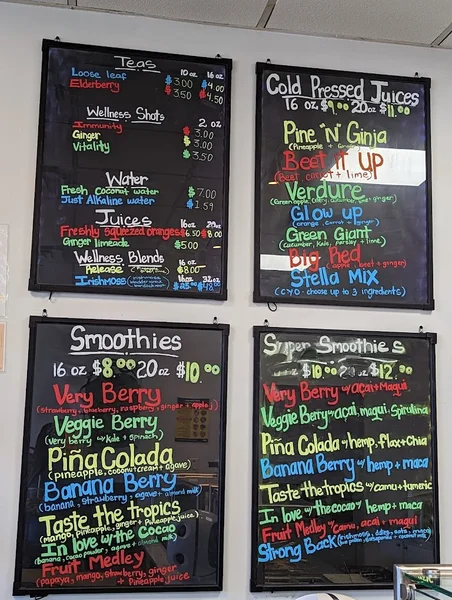 Teas
10 oz 16 oz
Loose leaf $3.00 $4.00
Elderberry $3.50 $4.50
Wellness Shots
2 oz
Immunity $3.00
Ginger $3.00
Vitality $3.50
Water
Fresh Coconut water $7.00
Just Alkaline water $1.59
Juices
16 oz
Freshly squeezed oranges $6.50 $8.00
Ginger limeade $5.00
Wellness Blends
16 oz
Release $8.00
Irishmoss
Cold Pressed Juices
16 oz $9.00 20 oz $11.00
Pine 'N' Ginja
(Pineapple +
Beet it Up
(Beet carrot + lime)
Verdure
Glow up
(orange, carrot + ginger)
Green Giant
(cucumber, kale, parsley + lime)
Big Red
apple, beet + ginger)
Stella Mix
(CYO - choose up to 3 ingredients)
Smoothies
16 oz $8.00 20 oz $10.00
Very Berry
(strawberry, blueberry, raspberry, ginger + apple)
Veggie Berry
(very berry w/ kale + spinach)
Piña Colada
(pineapple, coconut cream + agave)
Banana Berry
(banana, strawberry, agave + almond milk)
Taste the tropics
(mango, pineapple, ginger + pineapple juice)
In love w/ the Cocoa
(banana, cocoa powder, agave + almond milk)
Fruit Medley
(papaya, mango, strawberry, ginger
+ Pineapple juice
Super Smoothies
oz $10.00 20 oz $12.00
Very Berry w/ açai + Maqui
Veggie Berry w/ açai, maqui, Spirulina
Piña Colada w/ hemp, Flax + Chia
Banana Berry w/ hemp + maca
Taste the tropics w/ camu + tumeric
In love w/ the cocoa w/ hemp + maca
Fruit Medley w/ camu, açai + maqui
Strong Back